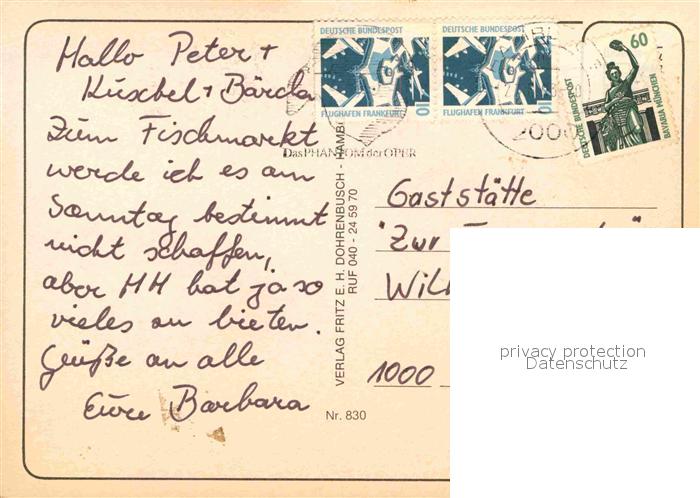 Hallo Peter +
Kuschel + Bärda
Zum Fischmarkt
werde ich es am
Sonntag bestimmt
nicht schaffen,
aber HH hat ja so
vieles an bieten.
Grüße an alle
Eure Barbara
DEUTSCHE BUNDESPOST
FLUGHAFEN FRANKFURT
10
DEUTSCHE BUNDESPOST
FLUGHAFEN FRANKFURT
10
60
DEUTSCHE BUNDESPOST
BAVARIA MÜNCHEN
2000
Das PHANTOM der OPER
VERLAG FRITZ E. H. DOHRENBUSCH - HAMB
RUF 040 - 24 59 70
Nr. 830
Gaststätte
"Zur
1000
privacy protection
Datenschutz